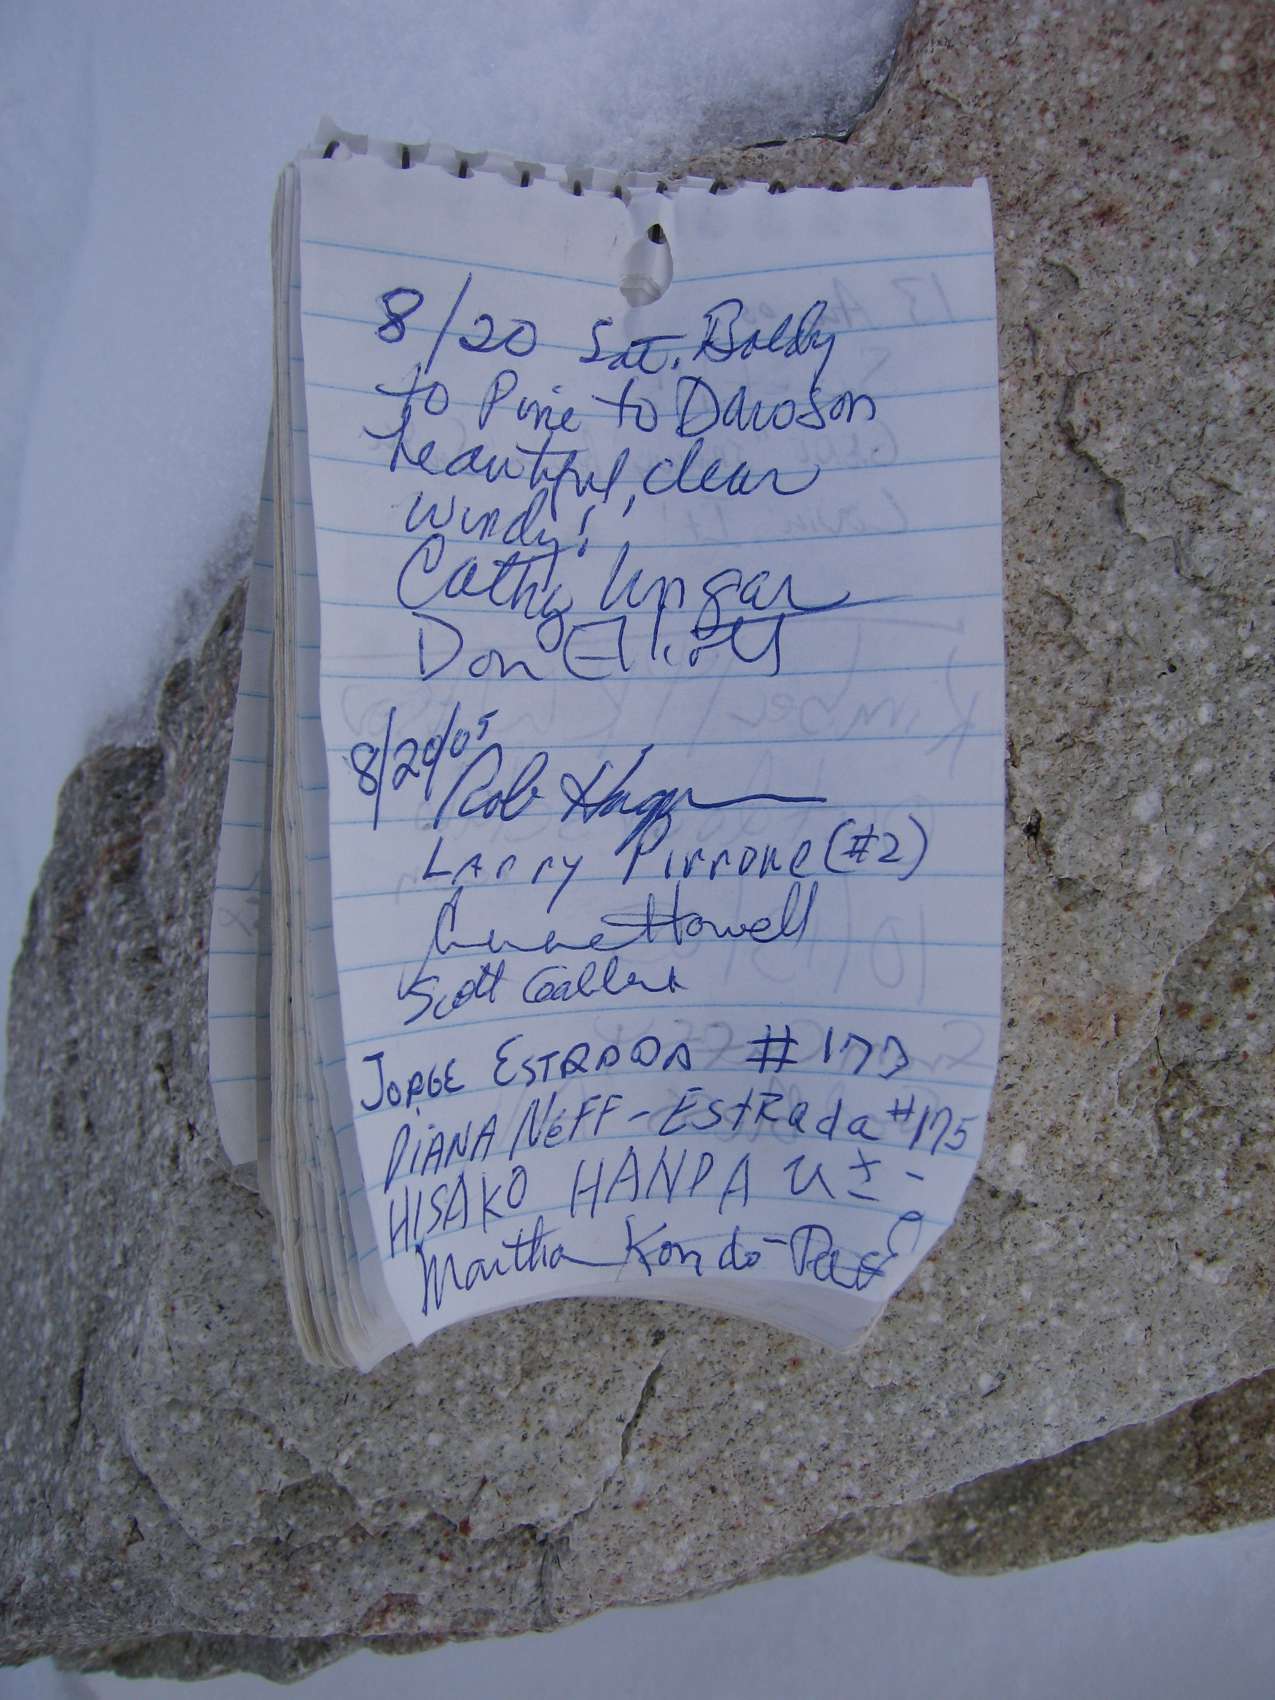 8/20 Sat. Baldy
to Pine to Dawson
beautiful, clear
windy!
Cathy Ungar
Don Elliott
8/20/05
Rob
Larry Pirrone (#2)
Howell
Scott
JORGE ESTRADA #173
DIANA NEFF-EStRada #175
HISAKO HANDA
Martha Kondo-